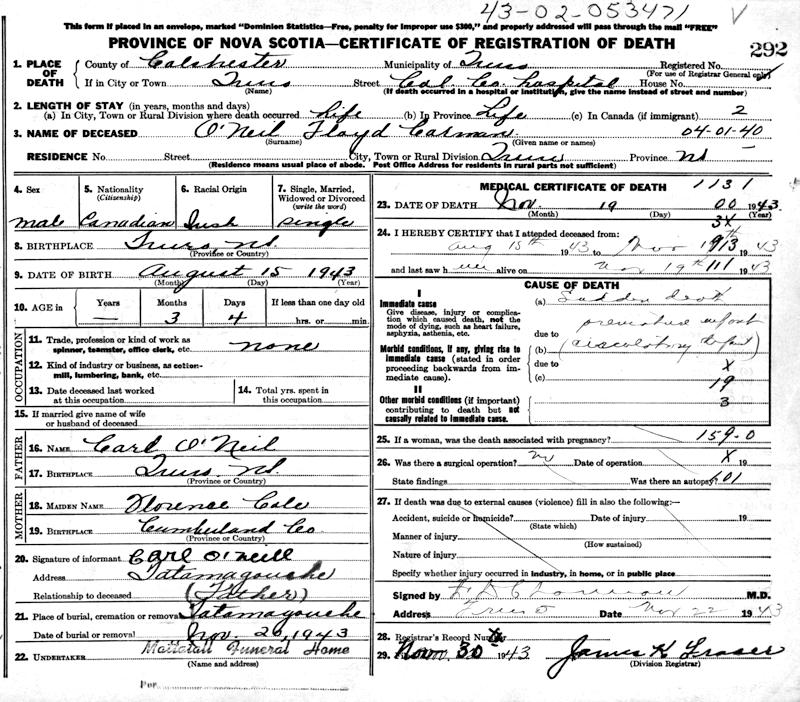 43-02-053471 V
This form if placed in an envelope, marked "Dominion Statistics—Free, penalty for improper use $300," and properly addressed will pass through the mail "FREE"
PROVINCE OF NOVA SCOTIA—CERTIFICATE OF REGISTRATION OF DEATH
292
1. PLACE OF DEATH County of Colchester Municipality of Truro Registered No.
(For use of Registrar General only)
If in City or Town Truro Street Col. Co. hospital House No.
(Name) (If death occurred in a hospital or institution, give the name instead of street and number)
2. LENGTH OF STAY (in years, months and days)
(a) In City, Town or Rural Division where death occurred Life (b) In Province Life (c) In Canada (if immigrant) 2
3. NAME OF DECEASED O'Neil Floyd Carman 04-01-40
(Surname) (Given name or names)
RESIDENCE No. Street City, Town or Rural Division Truro Province NS
(Residence means usual place of abode. Post Office Address for residents in rural parts not sufficient)
4. Sex 5. Nationality (Citizenship) 6. Racial Origin 7. Single, Married, Widowed or Divorced (write the word)
male Canadian Irish single
8. BIRTHPLACE Truro, NS.
(Province or Country)
9. DATE OF BIRTH August 15 1943
(Month) (Day) (Year)
10. AGE in Years Months Days If less than one day old
— 3 4 hrs. or min.
OCCUPATION
11. Trade, profession or kind of work as spinner, teamster, office clerk, etc. none
12. Kind of industry or business, as cotton-mill, lumbering, bank, etc.
13. Date deceased last worked at this occupation
14. Total yrs. spent in this occupation
15. If married give name of wife or husband of deceased
FATHER
16. NAME Carl O'Neil
17. BIRTHPLACE Truro NS.
(Province or Country)
MOTHER
18. MAIDEN NAME Florence Cole
19. BIRTHPLACE Cumberland Co.
(Province or Country)
20. Signature of informant Carl O'Neill
Address Tatamagouche
Relationship to deceased (Father)
21. Place of burial, cremation or removal Tatamagouche
Date of burial or removal Nov. 20, 1943
22. UNDERTAKER Mattatall Funeral Home
(Name and address)
For
MEDICAL CERTIFICATE OF DEATH 1131
23. DATE OF DEATH Nov. 19 00 1943
(Month) (Day) (Year)
3X
24. I HEREBY CERTIFY that I attended deceased from:
Aug 15th 1943 to Nov 19th 1943
and last saw h alive on Nov 19th 111 1943
CAUSE OF DEATH
I
Immediate cause
Give disease, injury or complication which caused death, not the mode of dying, such as heart failure, asphyxia, asthenia, etc.
(a) Sudden death
due to premature infant
Morbid conditions, if any, giving rise to immediate cause (stated in order proceeding backwards from immediate cause).
(b)
due to X
(c) 19
II
Other morbid conditions (if important) contributing to death but not causally related to immediate cause.
3
25. If a woman, was the death associated with pregnancy? 159-0
26. Was there a surgical operation? no Date of operation X 19
State findings Was there an autopsy? 601
27. If death was due to external causes (violence) fill in also the following:—
Accident, suicide or homicide? Date of injury 19
(State which)
Manner of injury
(How sustained)
Nature of injury
Specify whether injury occurred in industry, in home, or in public place
Signed by M.D.
Address Truro Date Nov 22 1943
28. Registrar's Record Number X
29. Nov. 30 1943 James K Fraser
(Division Registrar)